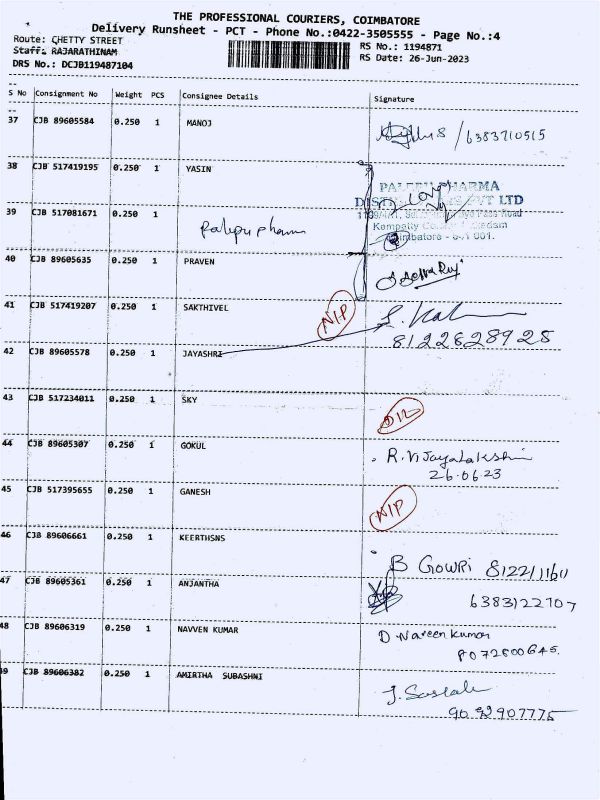 THE PROFESSIONAL COURIERS, COIMBATORE
Delivery Runsheet - PCT - Phone No.:0422-3505555 - Page No.:4
Route: CHETTY STREET
RS No.: 1194871
Staff: RAJARATHINAM
RS Date: 26-Jun-2023
DRS No.: DCJB119487104
S No Consignment No Weight PCS Consignee Details Signature
37 CJB 89605584 0.250 1 MANOJ
/ 6383710515
38 CJB 517419195 0.250 1 YASIN
PHARMA
PVT LTD
39 CJB 517081671 0.250 1
Coimbatore
40 CJB 89605635 0.250 1 PRAVEN
41 CJB 517419207 0.250 1 SAKTHIVEL
N/P
8122628928
42 CJB 89605578 0.250 1 JAYASHRI
43 CJB 517234011 0.250 1 SKY
44 CJB 89605307 0.250 1 GOKUL
R. Vijayalakshmi
26.06.23
45 CJB 517395655 0.250 1 GANESH
N/P
46 CJB 89606661 0.250 1 KEERTHSNS
B Gowri
47 CJB 89605361 0.250 1 ANJANTHA
6383122707
48 CJB 89606319 0.250 1 NAVVEN KUMAR
D. Naveen Kumar
8072800645.
49 CJB 89606382 0.250 1 AMIRTHA SUBASHNI